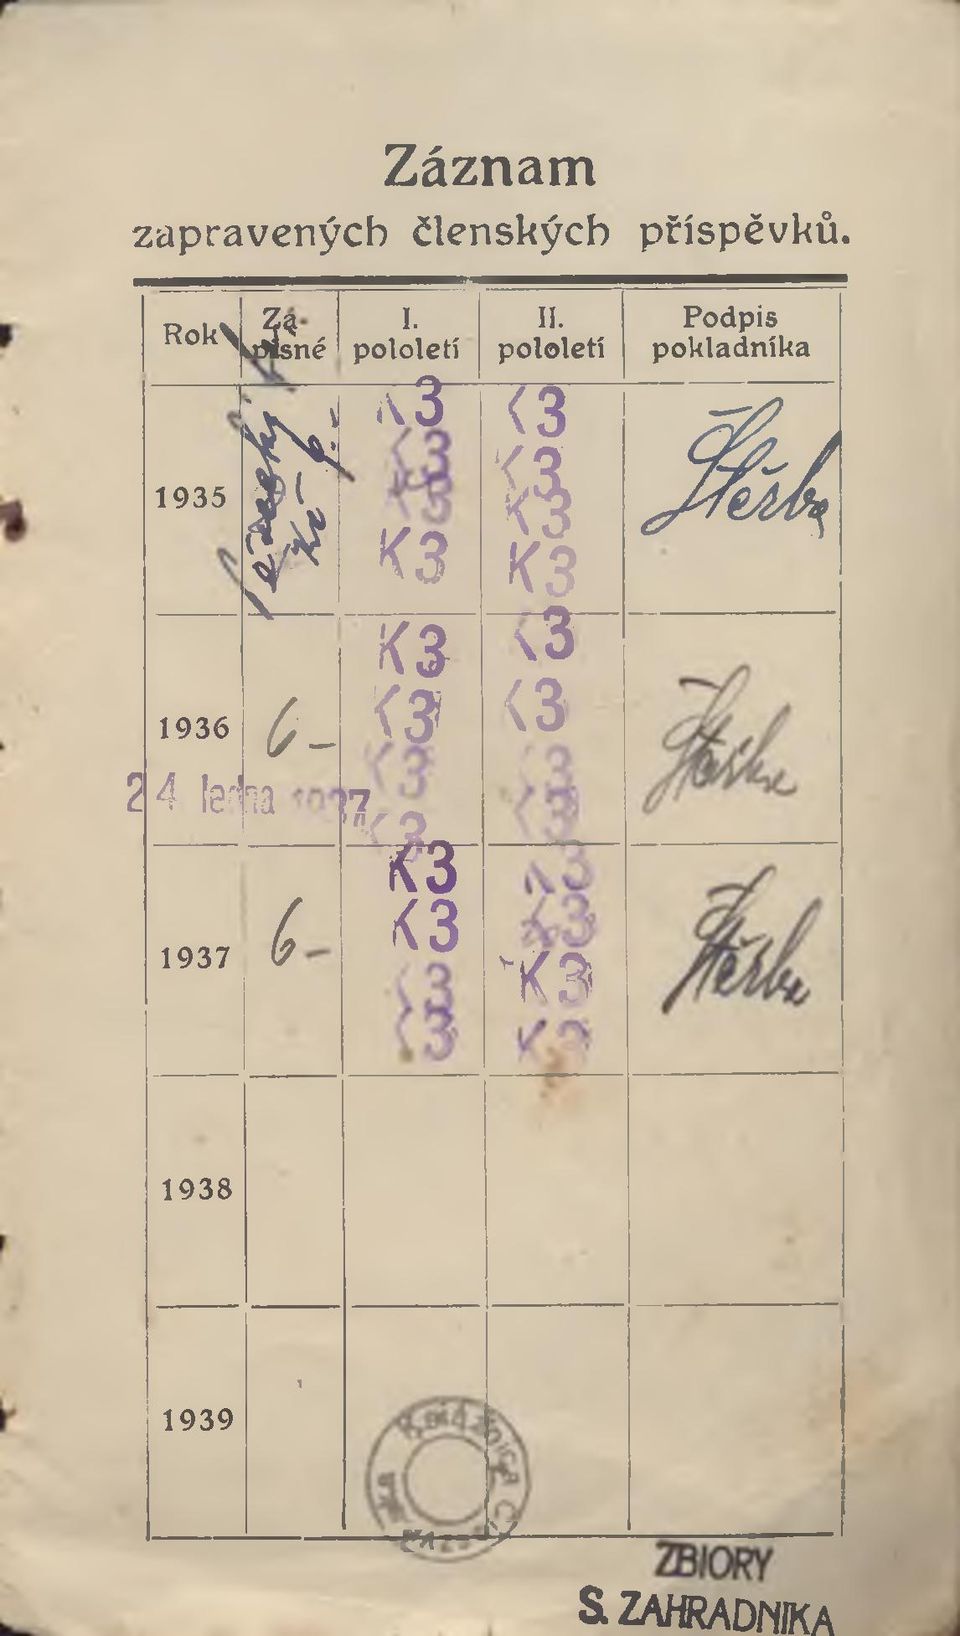 Záznam
zapravených členských příspěvků.
Rok Zápisné I. pololetí II. pololetí Podpis pokladníka
K3 K3
K3 K3
1935 Kč 6.- K3 K3 Štěrba
K3 K3
K3 K3
1936 6- K3 K3
K3 K3
24. ledna 1937 K3 K3
K3 K3
1937 6- K3 K3 Štěrba
K3 K3
K3 K3
1938
1939
ZBIORY
S. ZAHRADNIKA